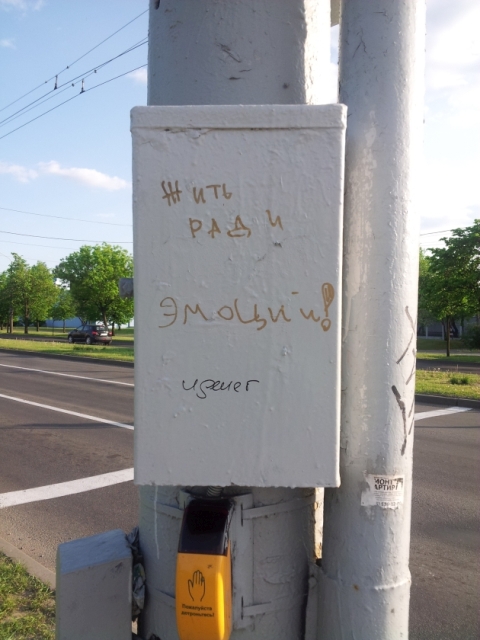 Жить
Ради
Эмоций!
иренег
Пожалуйста